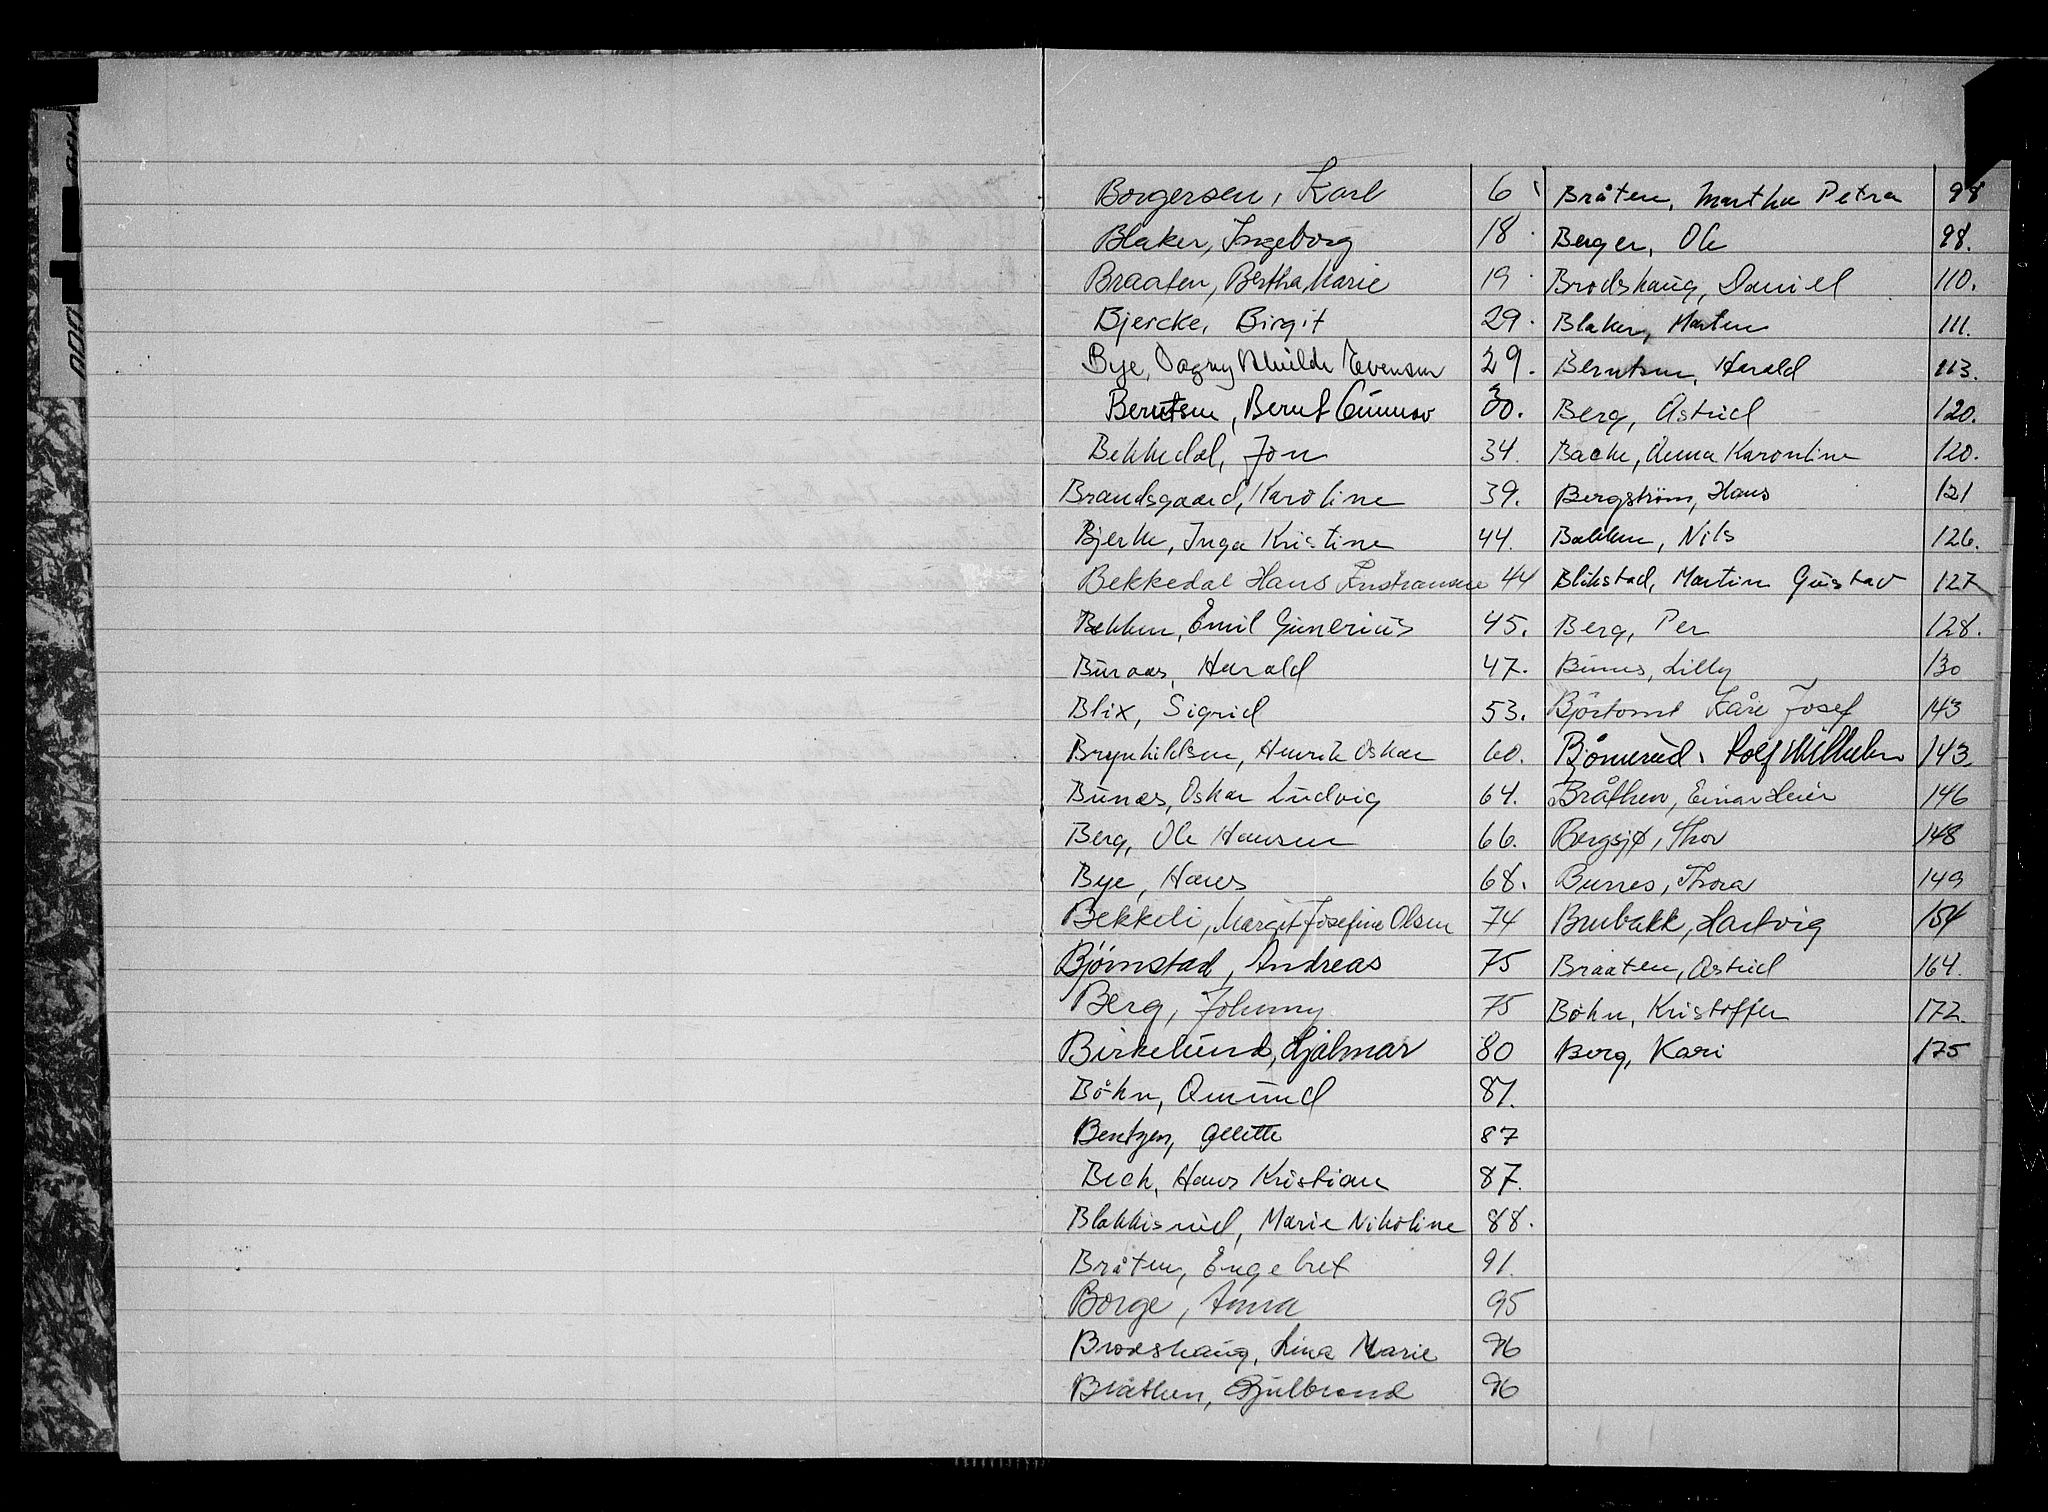 Borgersen, Karl 6
Blaker, Ingeborg 18.
Braaten, Bertha Marie 19
Bjercke, Birgit 29.
Bye, Dagny Evensen 29.
Berntsen, Bernt Gunnar 30.
Bekkedal, Jon 34.
Brandsgaard, Karoline 39.
Bjerke, Inga Kristine 44.
Bekkedal Hans 44
Bekken, Emil Gunerius 45.
Buraas, Harald 47.
Blix, Sigrid 53.
Brynhildsen, Henrik Oskar 60.
Bunæs, Oskar Ludvig 64.
Berg, Ole Hansen 66.
Bye, Hans 68.
Bekkeli, Margit Josefine Olsen 74
Bjørnstad, Andreas 75
Berg, Johnny 75
Birkelund, Hjalmar 80
Böhn, Amund 81.
Bentzen, 87
Bech, Hans Kristian 87.
Blakkisrud, Marie Nikoline 88.
Bråten, Engebret 91.
Borge, Anna 95
Brodshaug, Lina Marie 96
Bråthen, Gulbrand 96
Bråten, Martha Petra 98
Berger, Ole 98.
Brodshaug, Daniel 110.
Blaker, Marten 111.
Berntsen, Harald 113.
Berg, Astrid 120.
Bache, Anna Karontine 120.
Bergström, Hans 121
Bakken, Nils 126.
Blikstad, Martin Gustav 127
Berg, Per 128.
Bunes, Lilly 130
Björtomt Kåre Josef 143
Bjørnerud, Rolf Wilhelm 143
Bråthen, Einar Heier 146
Bergsjø, Thor 148
Bunes, Thora 149
Brubakk, Hartvig 154
Braaten, Astrid 164.
Böhn, Kristoffer 172.
Berg, Kari 175